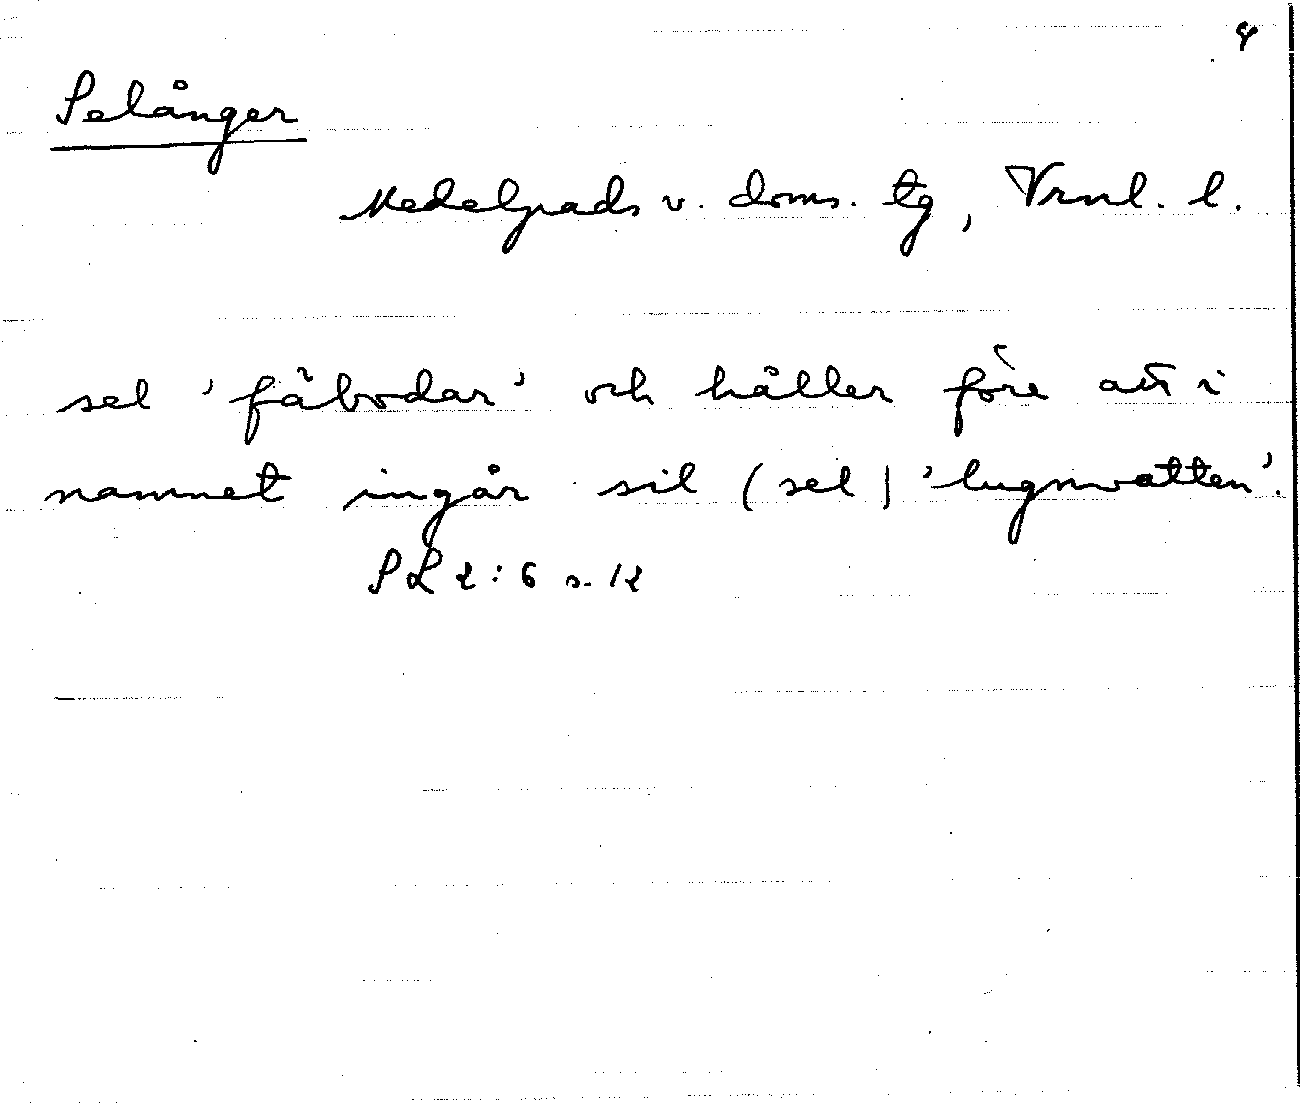 8
Selånger
Medelpads v. doms. tg, Vrnl. l.
sel 'fäbodar' och håller före att i
namnet ingår sil (sel) 'lugnvatten'.
SL 2:6 s. 12